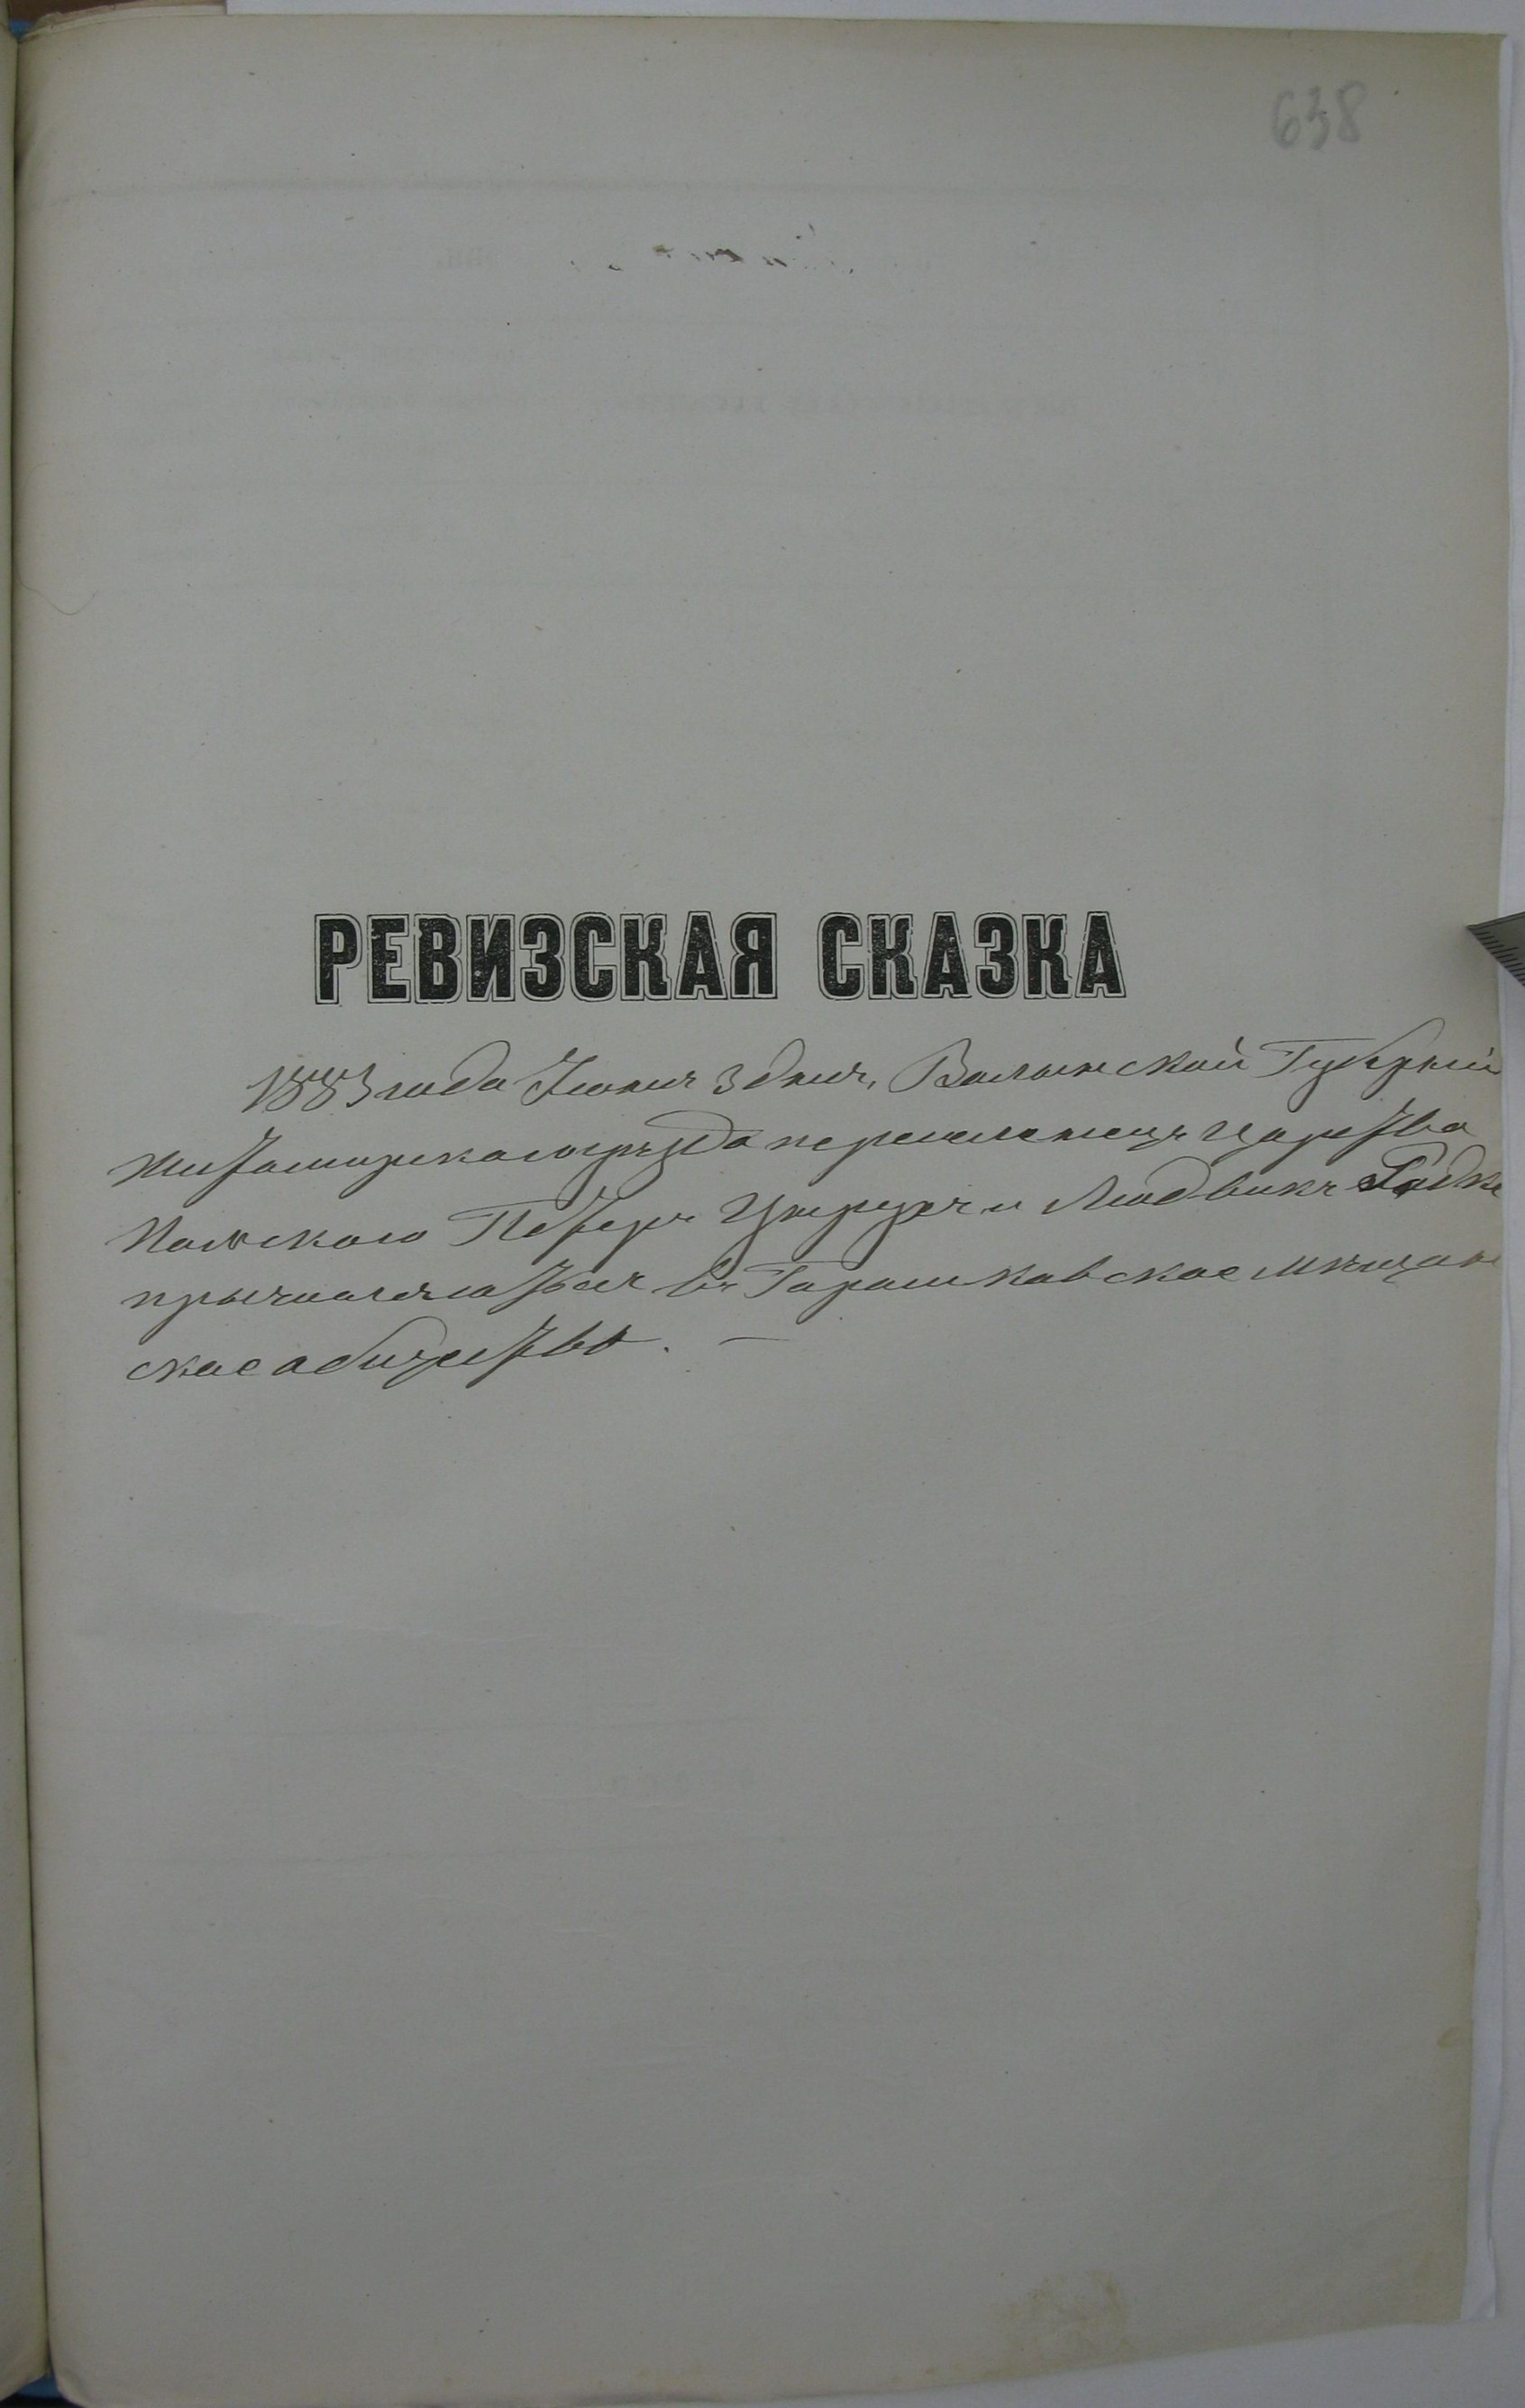 638
РЕВИЗСКАЯ СКАЗКА
1883 года Июня 3 дня, Волынской Губерніи
Житомирского уѣзда переселенецъ Царства
Польского Петеръ и Людвикъ Радке
причисляются въ Горошковское мѣщан
ское общество. —